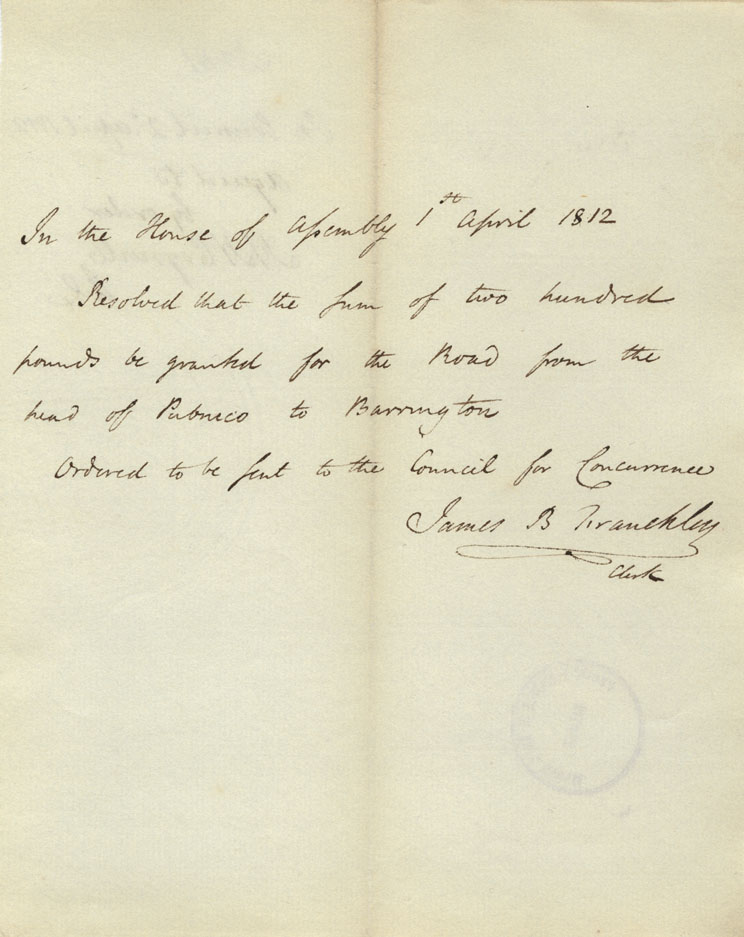 In the House of Assembly 1st April 1812
Resolved that the sum of two hundred
pounds be granted for the Road from the
head of Pubnico to Barrington
Ordered to be sent to the Council for Concurrence
James B Franchley
Clerk